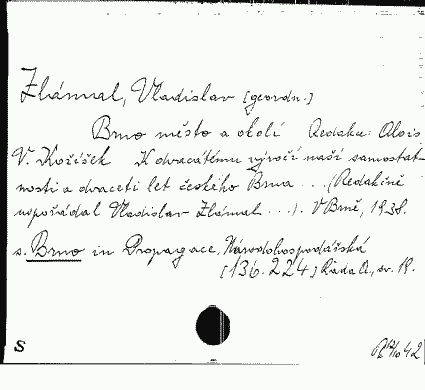 Zhánal, Vladislav [geordn.]
Brno město a okolí Redakc: Alois
V. Kožíšek K dvacátému výročí naší samostat-
nosti a dvaceti let českého Brna ... (Redakčně
uspořádal Vladislav Zhánal ...). V Brně, 1938.
s. Brno in Propagace, Národohospodářská
[136.224] Řada A., sv. 19.
S